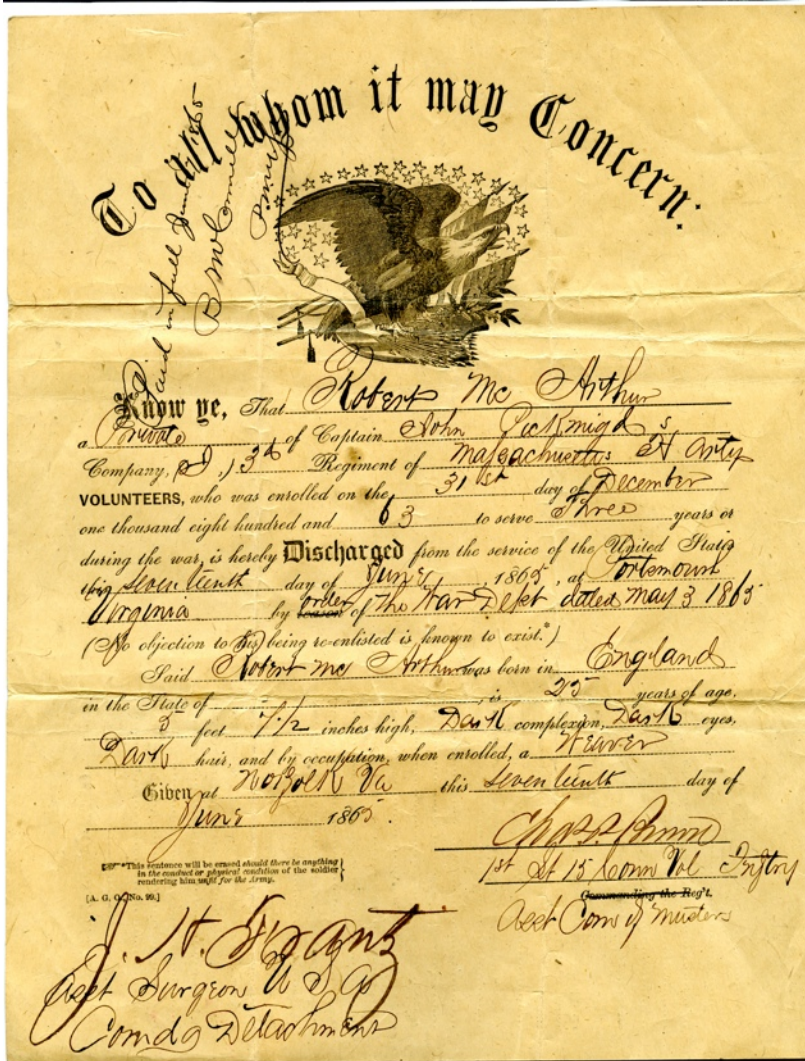 To all whom it may Concern:
Paid in full June 1865
Paym
Know ye, That Robert Mc Arthur
a Private of Captain John Pickmigd s
Company, (I,) 3d Regiment of Massachusetts H Arty
VOLUNTEERS, who was enrolled on the 31st day of December
one thousand eight hundred and 63 to serve Three years or
during the war, is hereby Discharged from the service of the United States
this seventeenth day of June, 1865, at Portsmouth
Virginia by reason order of The War Dept dated May 3 1865
(No objection to his being re-enlisted is known to exist.*)
Said Robert Mc Arthur was born in England
in the State of , is 25 years of age,
5 feet 7 1/2 inches high, Dark complexion, Dark eyes,
Dark hair, and by occupation, when enrolled, a Weaver
Given at Norfolk Va this seventeenth day of
June 1865.
Chas
1st Lt 15 Conn Vol Inftry
Commanding the Reg't.
Asst Com of Musters
*This sentence will be erased should there be anything
in the conduct or physical condition of the soldier
rendering him unfit for the Army.
[A. G. O. No. 99.]
J. H. Frantz
Asst Surgeon U S A
Comdg Detachment